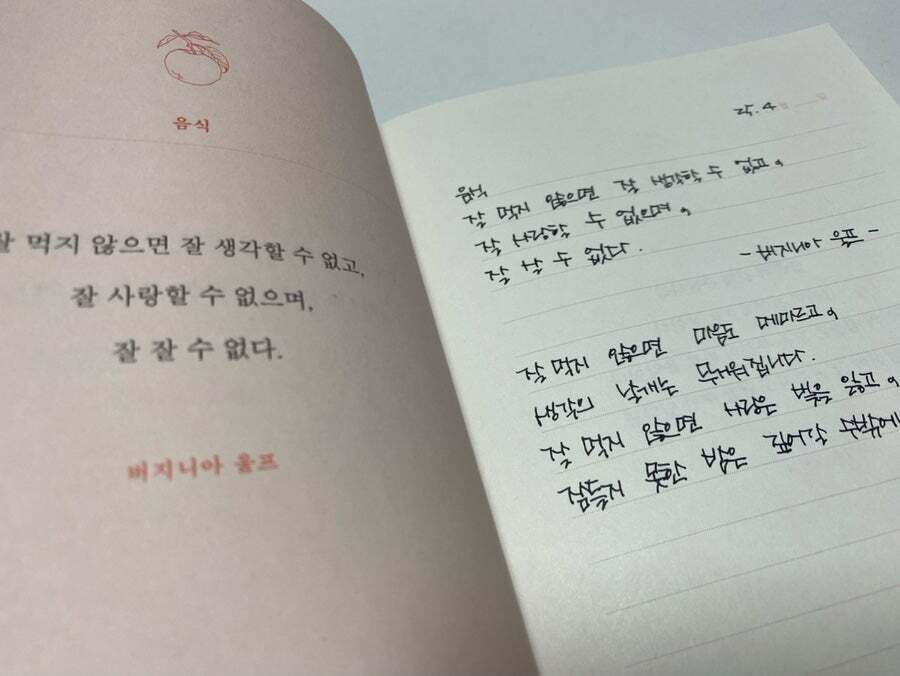 음식
잘 먹지 않으면 잘 생각할 수 없고,
잘 사랑할 수 없으며,
잘 잘 수 없다.
버지니아 울프
25. 4
음식
잘 먹지 않으면 잘 생각할 수 없고,
잘 사랑할 수 없으며,
잘 잘 수 없다.
- 버지니아 울프 -
잘 먹지 않으면 마음도 메마르고,
생각의 날개는 무거워집니다.
잘 먹지 않으면 사랑은 빛을 잃고,
잠들지 못한 밤은